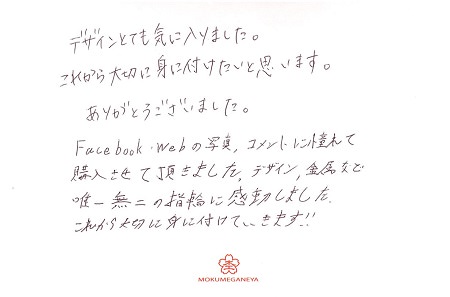 デザインとても気に入りました。
これから大切に身に付けたいと思います。
ありがとうございました。
Facebook・Webの写真、コメントに憧れて
購入させて頂きました。デザイン、金属など
唯一無二の指輪に感動しました。
これから大切に身に付けていきます!!
MOKUMEGANEYA